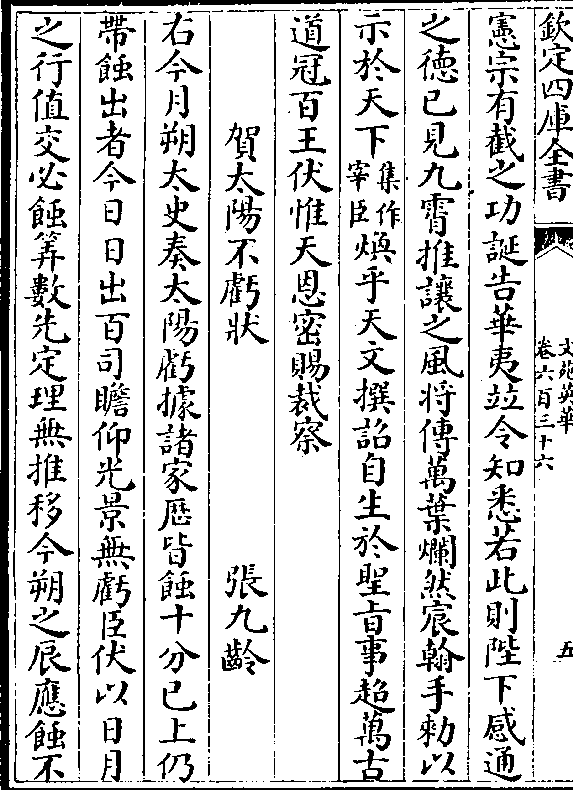 欽定四庫全書
文苑英華
卷六百三十六
五
憲宗有截之功誕告華夷並令知悉若此則陛下感通
之德已見九霄推讓之風將傳萬葉爛然宸翰手勅以
示於天下集作宰臣煥乎天文撰詔自生於聖旨事超萬古
道冠百王伏惟天恩密賜裁察
賀太陽不虧狀 張九齡
右今月朔太史奏太陽虧據諸家厯皆蝕十分已上仍
帶蝕出者今日日出百司瞻仰光景無虧臣伏以日月
之行值交必蝕筭數先定理無推移今朔之辰應蝕不